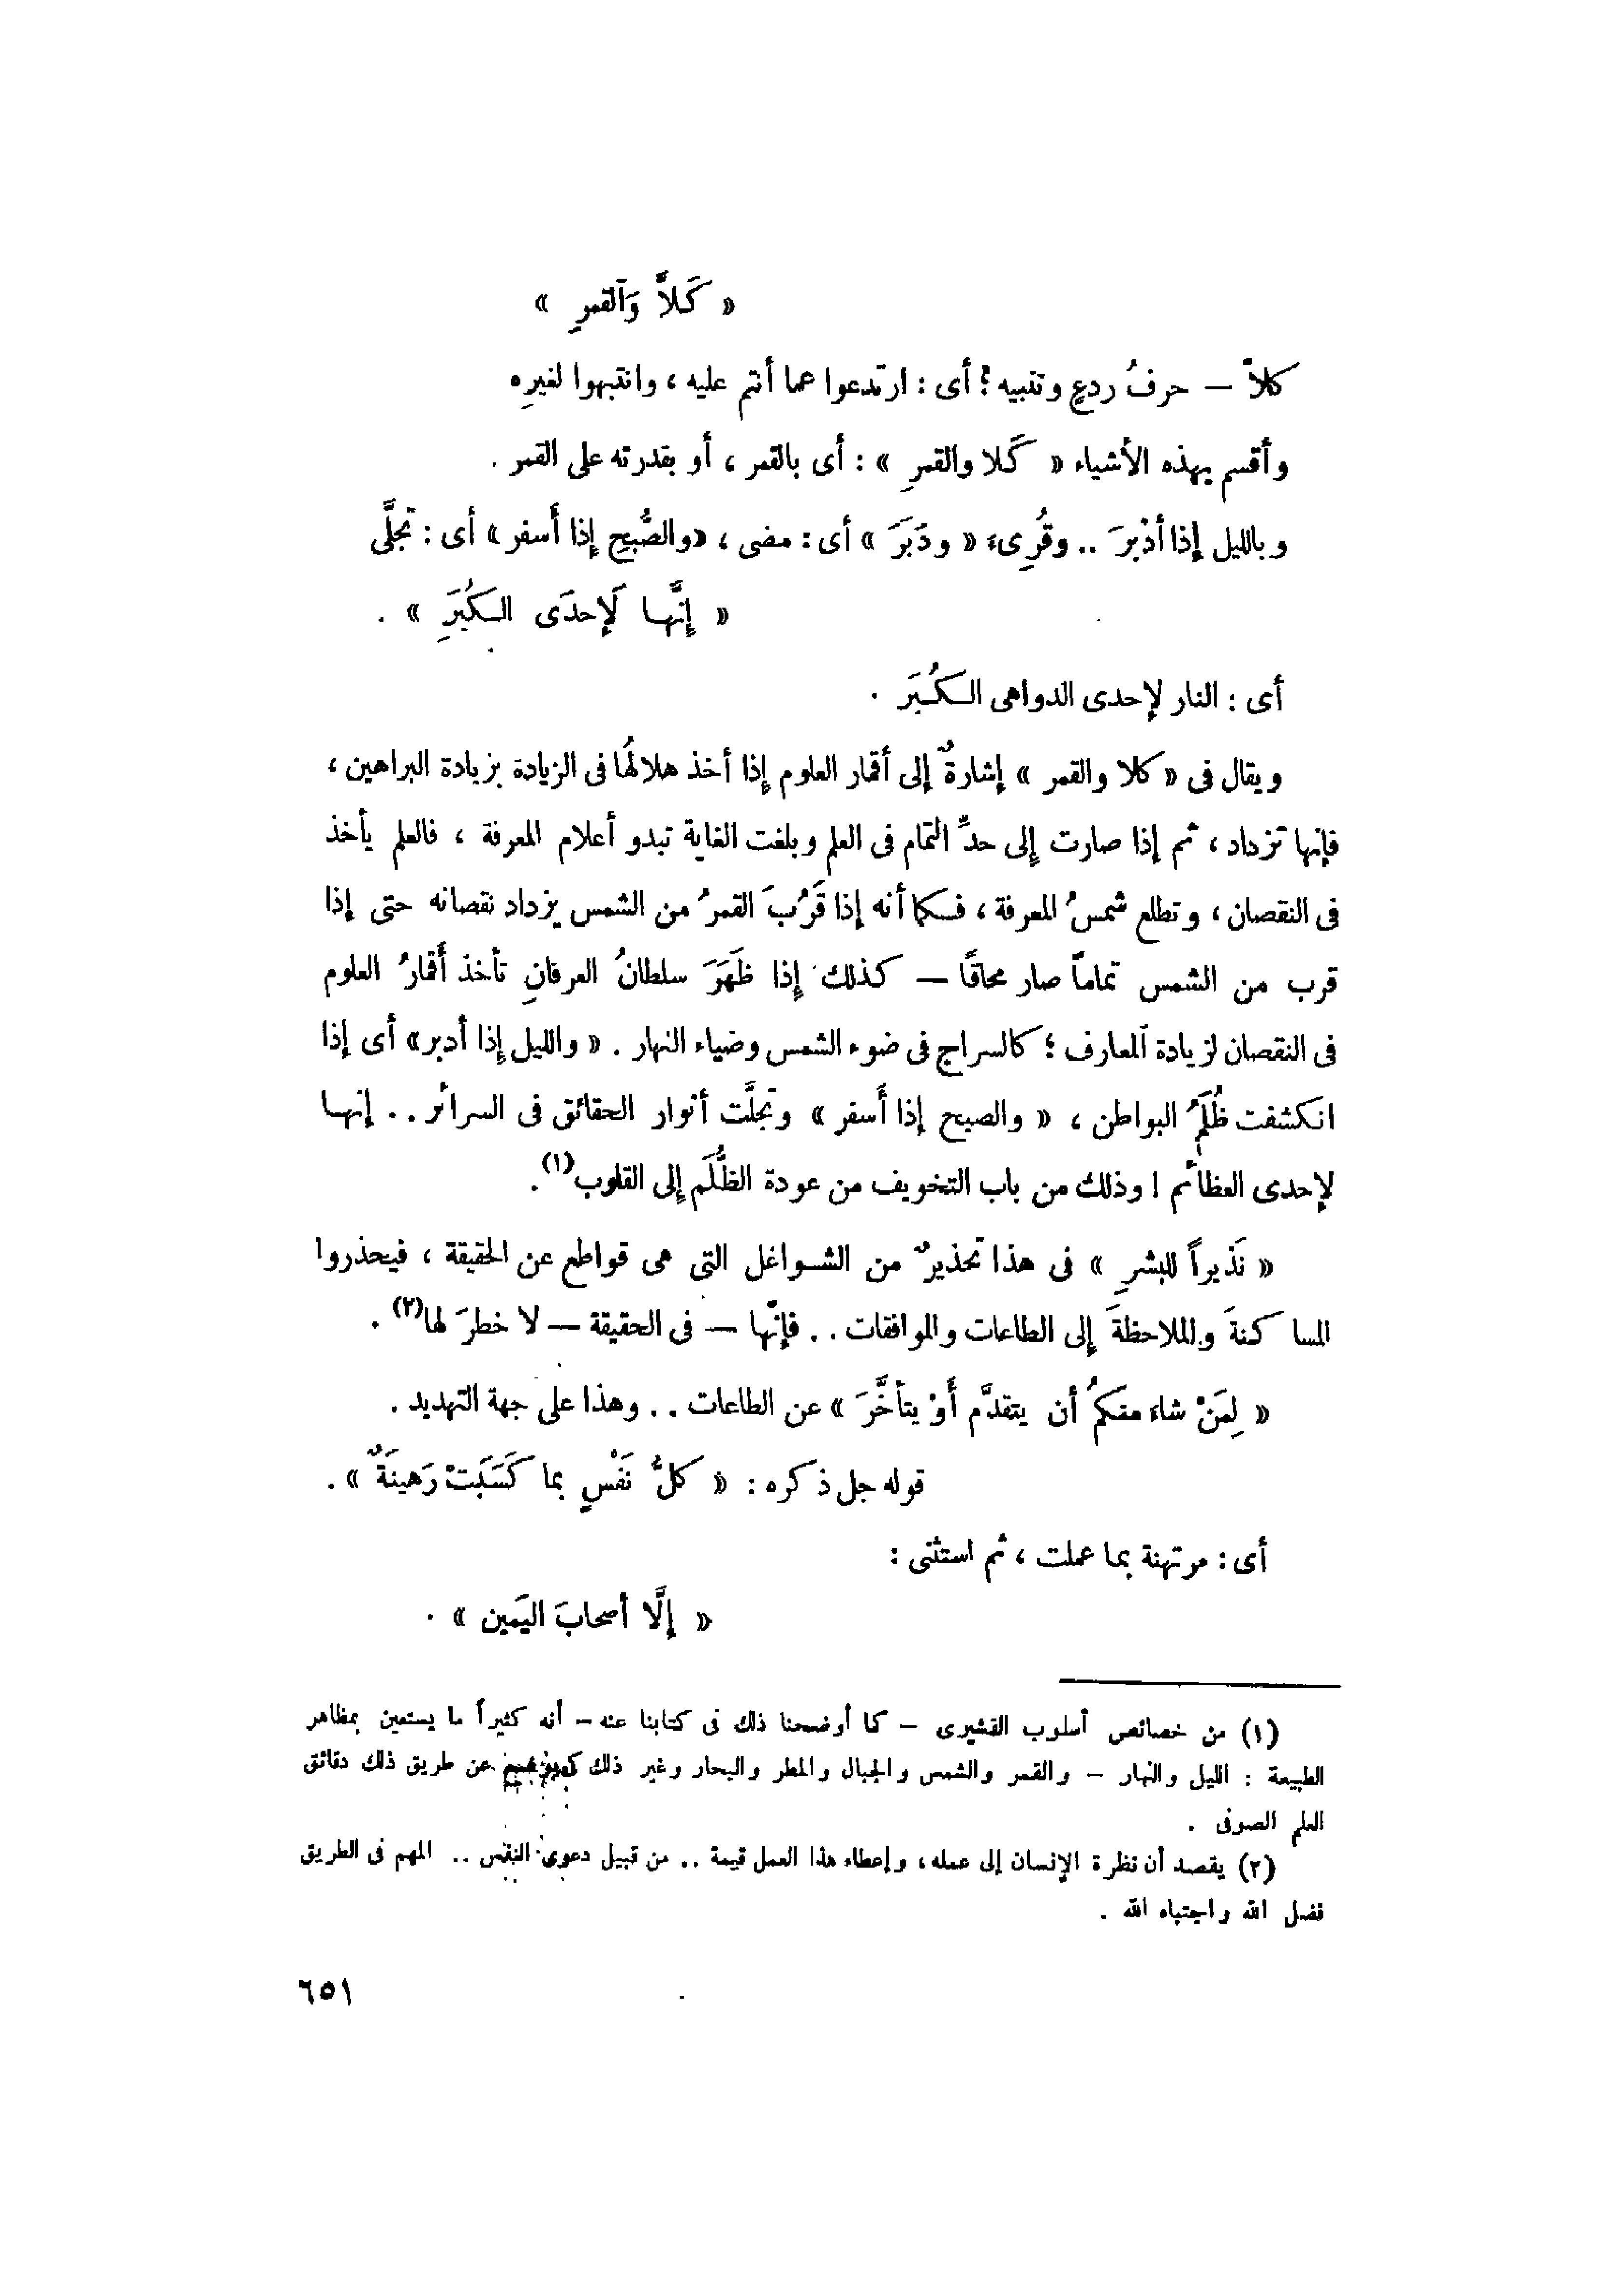 « كَلاَّ وَٱلقمرِ »
كلاّ — حرفُ ردعٍ وتنبيه ؛ أى : ارتدعوا عما أنتم عليه ، وانتبهوا لغيرِه
وأقسم بهذه الأشياء « كَلا والقمرِ » : أى بالقمر ، أو بقدرته على القمر .
وبالليل إذا أدْبرَ .. وقُرِىءَ « ودَبَرَ » أى : مضى ، «والصُّبحِ إذا أَسفر » أى : تَجلَّى
« إنَّها لَإحدَى الكُبَرِ » .
أى : النار لإحدى الدواهى الكُبَر .
ويقال فى « كلا والقمر » إشارةٌ إلى أقمار العلوم إذا أخذ هلالُها فى الزيادة بزيادة البراهين ،
فإنها تزداد ، ثم إذا صارت إلى حدِّ التمام فى العلم وبلغت الغاية تبدو أعلام المعرفة ، فالعلم يأخذ
فى النقصان ، وتطلع شمسُ المعرفة ، فكما أنه إذا قَرُبَ القمرُ من الشمس يزداد نقصانه حتى إذا
قرب من الشمس تماماً صار محاقًا — كذلك إذا ظَهَرَ سلطانُ العرفانِ تأخذ أقمارُ العلوم
فى النقصان لزيادة المعارف ؛ كالسراج فى ضوء الشمس وضياء النهار . « والليل إذا أدبر» أى إذا
انكشفت ظُلَمُ البواطن ، « والصبح إذا أَسفر » وتجلَّت أنوار الحقائق فى السرائر .. إنها
لإحدى العظائم ! وذلك من باب التخويف من عودة الظُّلَم إلى القلوب(١).
« نَذيراً للبشرِ » فى هذا تحذيرٌ من الشواغل التى هى قواطع عن الحقيقة ، فيحذروا
المساكنةَ والملاحظةَ إلى الطاعات والموافقات .. فإنّها — فى الحقيقة — لا خطرَ لها(٢) .
« لِمَنْ شاءَ منكمُ أن يتقدَّم أَوْ يتأخَّرَ » عن الطاعات .. وهذا على جهة التهديد .
قوله جل ذكره : « كلُّ نَفْسٍ بما كَسَبَتْ رَهينَةٌ » .
أى : مرتهنة بما عملت ، ثم استثنى :
« إلَّا أصحابَ اليَمين » .
(١) من خصائص أسلوب القشيرى — كما أوضحنا ذلك فى كتابنا عنه — أنه كثيراً ما يستعين بمظاهر
الطبيعة : الليل والنهار — والقمر والشمس والجبال والمطر والبحار وغير ذلك عن طريق ذلك دقائق
العلم الصوفى .
(٢) يقصد أن نظرة الإنسان إلى عمله ، وإعطاء هذا العمل قيمة .. من قبيل دعوى النفس .. المهم فى الطريق
فضل الله واجتباه الله .
٦٥١